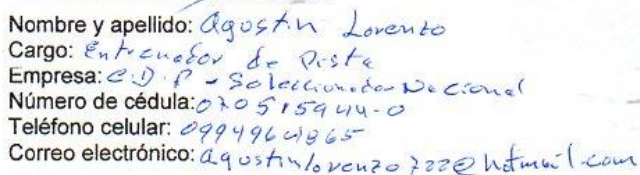 Nombre y apellido: Agustin Lorenzo
Cargo: Entrenador de Pista
Empresa: C.D.P - Seleccionador Nacional
Número de cédula: 070515944-0
Teléfono celular:
Correo electrónico: agustinlorenzo722@hotmail.com